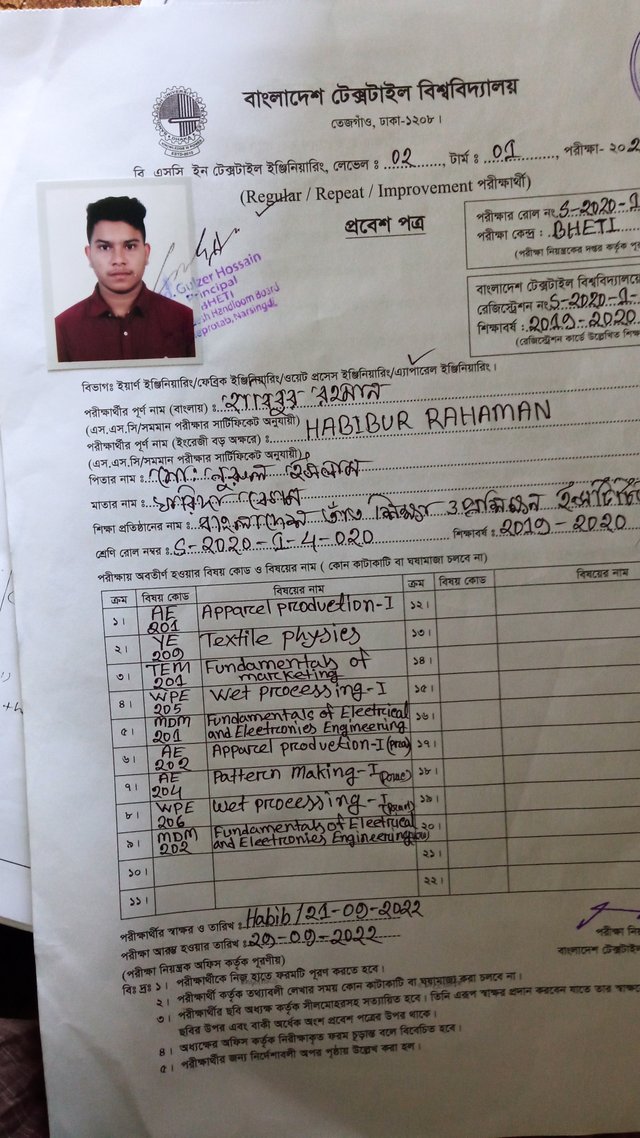 বাংলাদেশ টেক্সটাইল বিশ্ববিদ্যালয়
তেজগাঁও, ঢাকা-১২০৮।
বি এসসি ইন টেক্সটাইল ইঞ্জিনিয়ারিং, লেভেল ঃ 02, টার্ম ঃ 01, পরীক্ষা- ২০2
(Regular / Repeat / Improvement পরীক্ষার্থী)
প্রবেশ পত্র
পরীক্ষার রোল নং S-2020-1
পরীক্ষা কেন্দ্র : BHETI
(পরীক্ষা নিয়ন্ত্রকের দপ্তর কর্তৃক
Gulzer Hossain
Principal
BHETI
Handloom Board
Narsingdi
বাংলাদেশ টেক্সটাইল বিশ্ববিদ্যালয়ে
রেজিস্ট্রেশন নং S-2020-1
শিক্ষাবর্ষ : 2019-2020
(রেজিস্ট্রেশন কার্ডে উল্লেখিত
বিভাগঃ ইয়ার্ণ ইঞ্জিনিয়ারিং/ফেব্রিক ইঞ্জিনিয়ারিং/ওয়েট প্রসেস ইঞ্জিনিয়ারিং/এ্যাপারেল ইঞ্জিনিয়ারিং।
পরীক্ষার্থীর পূর্ণ নাম (বাংলায়) : হাবিবুর রহমান
(এস.এস.সি/সমমান পরীক্ষার সার্টিফিকেট অনুযায়ী)
পরীক্ষার্থীর পূর্ণ নাম (ইংরেজী বড় অক্ষরে) : HABIBUR RAHAMAN
(এস.এস.সি/সমমান পরীক্ষার সার্টিফিকেট অনুযায়ী)
পিতার নাম : মো: নুরুল ইসলাম
মাতার নাম : ফরিদা বেগম
শিক্ষা প্রতিষ্ঠানের নাম : বাংলাদেশ তাঁত শিক্ষা ও প্রশিক্ষন
শ্রেণি রোল নম্বর : S-2020-1-4-020 শিক্ষাবর্ষ : 2019-2020
পরীক্ষায় অবতীর্ণ হওয়ার বিষয় কোড ও বিষয়ের নাম ( কোন কাটাকাটি বা ঘষামাজা চলবে না)
ক্রম বিষয় কোড বিষয়ের নাম ক্রম বিষয় কোড বিষয়ের নাম
১। AE 201 Apparcel production-I ১২।
২। YE 209 Textile physics ১৩।
৩। TEM 201 Fundamentals of marcketing ১৪।
৪। WPE 205 Wet processing-I ১৫।
৫। MDM 201 Fundamentals of Electrical and Electronics Engineering ১৬।
৬। AE 202 Apparcel production-I ১৭।
৭। AE 204 Pattern Making-I ১৮।
৮। WPE 206 Wet processing-I ১৯।
৯। MDM 202 Fundamentals of Electrical and Electronics Engineering ২০।
১০। ২১।
১১। ২২।
পরীক্ষার্থীর স্বাক্ষর ও তারিখ : Habib/21-09-2022
পরীক্ষা আরম্ভ হওয়ার তারিখ : 29-09-2022
(পরীক্ষা নিয়ন্ত্রক অফিস কর্তৃক পূরণীয়)
পরীক্ষা
বাংলাদেশ
বিঃ দ্রঃ ১। পরীক্ষার্থীকে নিজ হাতে ফরমটি পূরণ করতে হবে।
২। পরীক্ষার্থী কর্তৃক তথ্যাবলী লেখার সময় কোন কাটাকাটি বা ঘষামাজা করা চলবে না।
৩। পরীক্ষার্থীর ছবি অধ্যক্ষ কর্তৃক সীলমোহরসহ সত্যায়িত হবে। তিনি এরূপ স্বাক্ষর প্রদান করবেন যাতে তার
ছবির উপর এবং বাকী অর্ধেক অংশ প্রবেশ পত্রের উপর থাকে।
৪। অধ্যক্ষের অফিস কর্তৃক নিরীক্ষাকৃত ফরম চূড়ান্ত বলে বিবেচিত হবে।
৫। পরীক্ষার্থীর জন্য নির্দেশাবলী অপর পৃষ্ঠায় উল্লেখ করা হল।